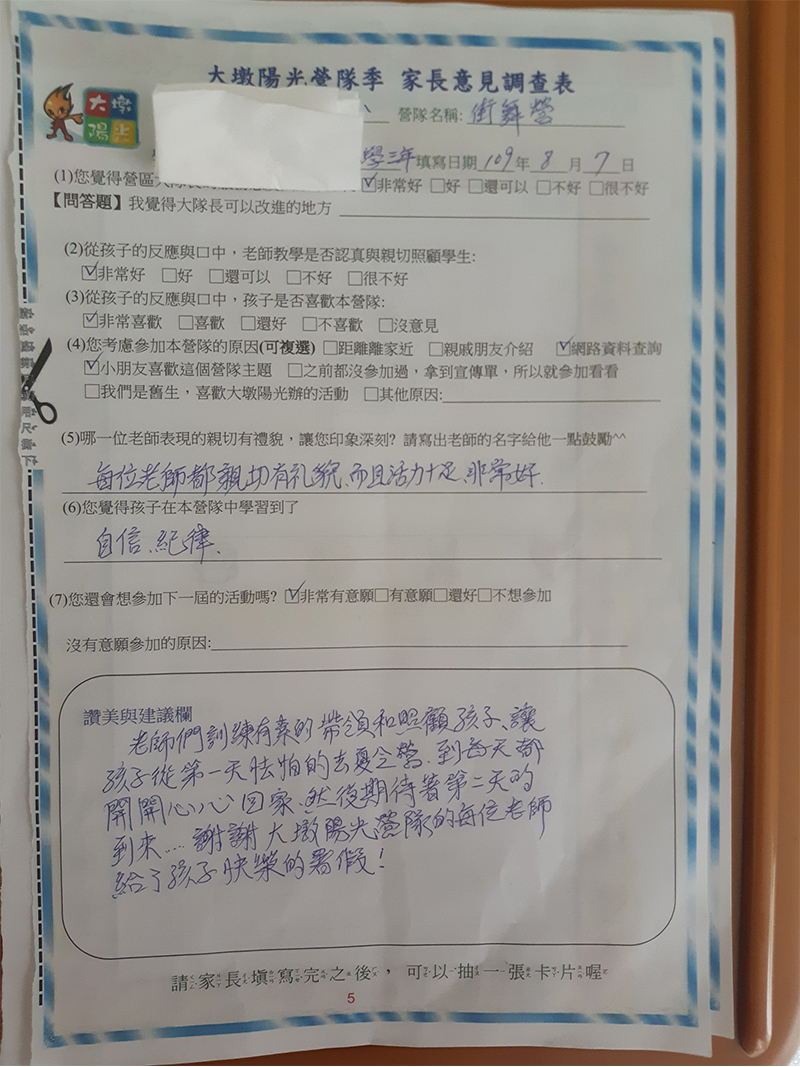 大墩陽光營隊季 家長意見調查表
大墩
陽光
營隊名稱: 街舞營
學三年 填寫日期 109 年 8 月 7 日
(1)您覺得營區大隊長 ☑非常好 □好 □還可以 □不好 □很不好
【問答題】我覺得大隊長可以改進的地方
(2)從孩子的反應與口中，老師教學是否認真與親切照顧學生:
☑非常好 □好 □還可以 □不好 □很不好
(3)從孩子的反應與口中，孩子是否喜歡本營隊:
☑非常喜歡 □喜歡 □還好 □不喜歡 □沒意見
(4)您考慮參加本營隊的原因(可複選) □距離離家近 □親戚朋友介紹 ☑網路資料查詢
☑小朋友喜歡這個營隊主題 □之前都沒參加過，拿到宣傳單，所以就參加看看
□我們是舊生，喜歡大墩陽光辦的活動 □其他原因:
(5)哪一位老師表現的親切有禮貌，讓您印象深刻? 請寫出老師的名字給他一點鼓勵^^
每位老師都親切有礼貌、而且活力十足、非常好.
(6)您覺得孩子在本營隊中學習到了
自信、紀律.
(7)您還會想參加下一屆的活動嗎? ☑非常有意願□有意願□還好□不想參加
沒有意願參加的原因:
讚美與建議欄
老師們訓練有素的帶領和照顧孩子、讓
孩子從第一天怯怕的去夏令營.到每天都
開開心心回家、然後期待著第二天的
到來...謝謝大墩陽光營隊的每位老師
給了孩子快樂的暑假!
請家長填寫完之後，可以抽一張卡片喔
5